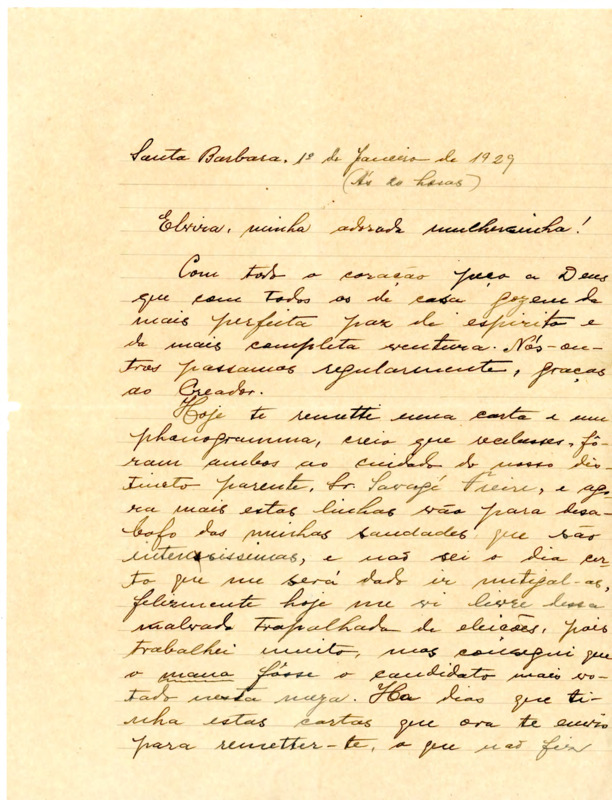 Santa Barbara, 1º de Janeiro de 1929
(Ás 20 horas)
Elvira, minha adorada mulhersinha!
Com todo o coração peço a Deus
que com todos os de casa gozem da
mais perfeita paz de espirito e
da mais completa ventura. Nós-ou-
tros passamos regularmente, graças
ao Creador.
Hoje te remetti uma carta e um
phonogramma, creio que recebesses, fô-
ram ambos ao cuidado do nosso dis-
tincto parente, Sr. Savagé Freire, e ago-
ra mais estas linhas vão para desa-
bafo das minhas saudades que são
intensissimas, e não sei o dia cer-
to que me será dado ir mitigal-as,
felizmente hoje me vi livre dessa
malvada trapalhada de eleições, pois
trabalhei muito, mas consegui que
o mano fôsse o candidato mais vo-
tado nesta meza. Ha dias que ti-
nha estas cartas que ora te envio
para remetter-te, o que não fiz